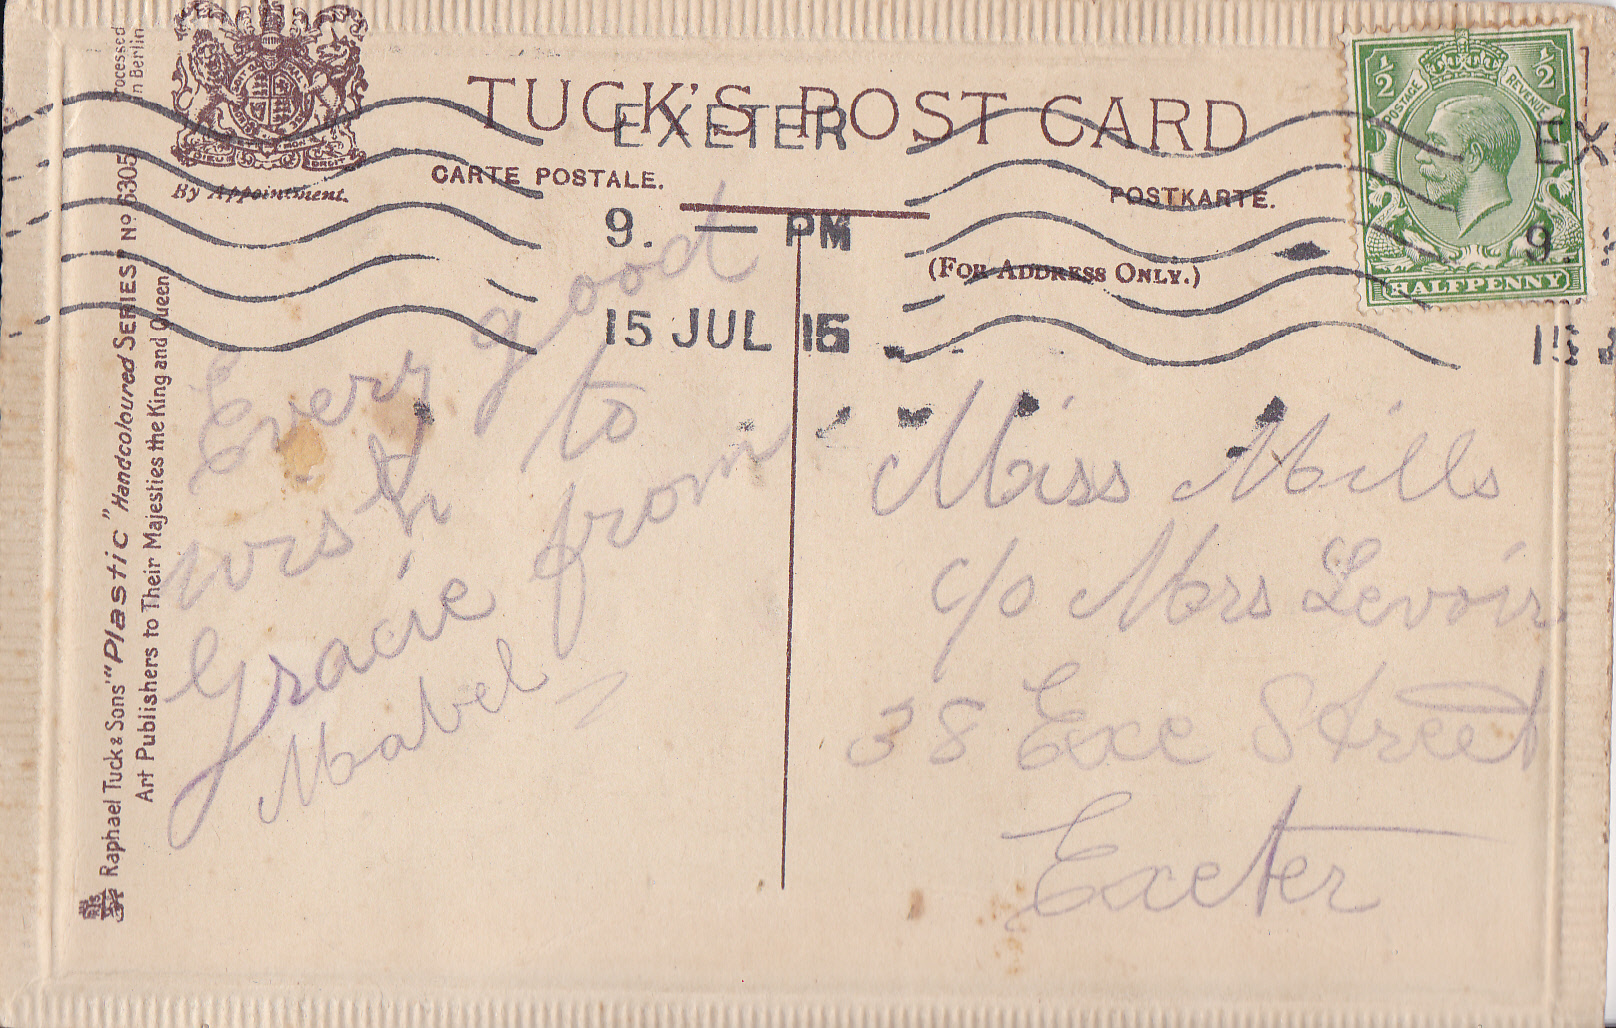 TUCK'S POST CARD
CARTE POSTALE.
POSTKARTE.
(FOR ADDRESS ONLY.)
By Appointment.
EXETER
9. — PM
15 JUL 16
POSTAGE REVENUE
½ ½
HALFPENNY
EX
9.
Every good
wish to
Gracie from
Mabel
Miss Mills
c/o Mrs Levoir
38 Exe Street
Exeter
Raphael Tuck & Sons' "Plastic" Handcoloured SERIES No 6305
Art Publishers to Their Majesties the King and Queen
Processed
in Berlin